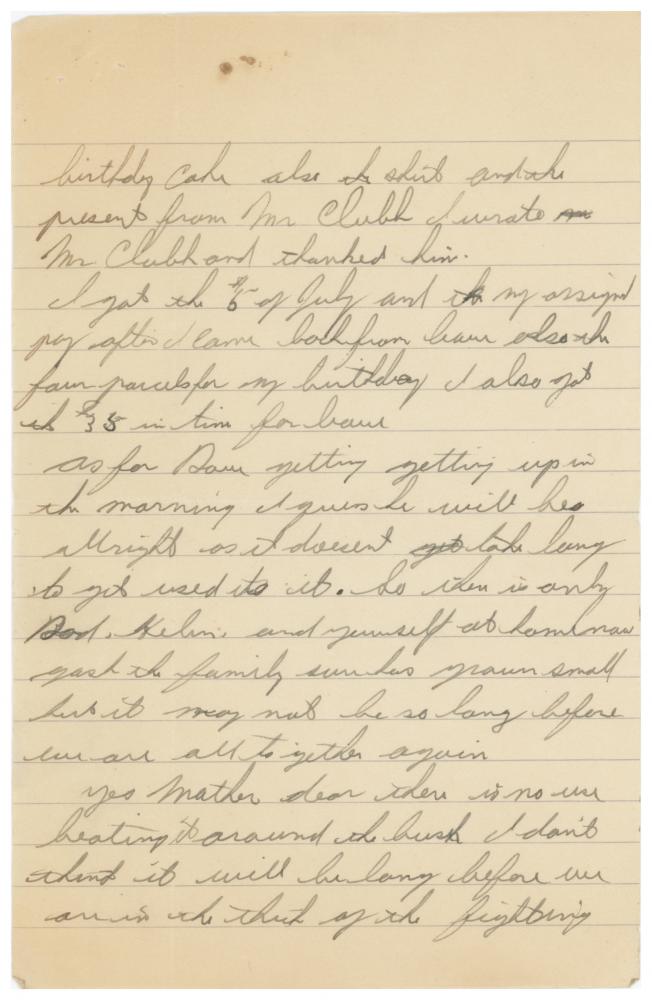 birthday cake also the shirt and the
present from Mr Clubb I wrote
Mr Clubb and thanked him.
I got the $5 of July and the my assigned
pay after I came back from leave also the
four parcels for my birthday I also got
the $35 in time for leave
as for Dave getting getting up in
the morning I guess he will be
allright as it doesent get take long
to get used to it. So there is only
Dad. Helen. and yourself at home now
gosh the family sure has grown small
but it may not be so long before
we are all together again
yes Mother dear there is no use
beating it around the bush I don't
think it will be long before we
are in the thick of the fighting